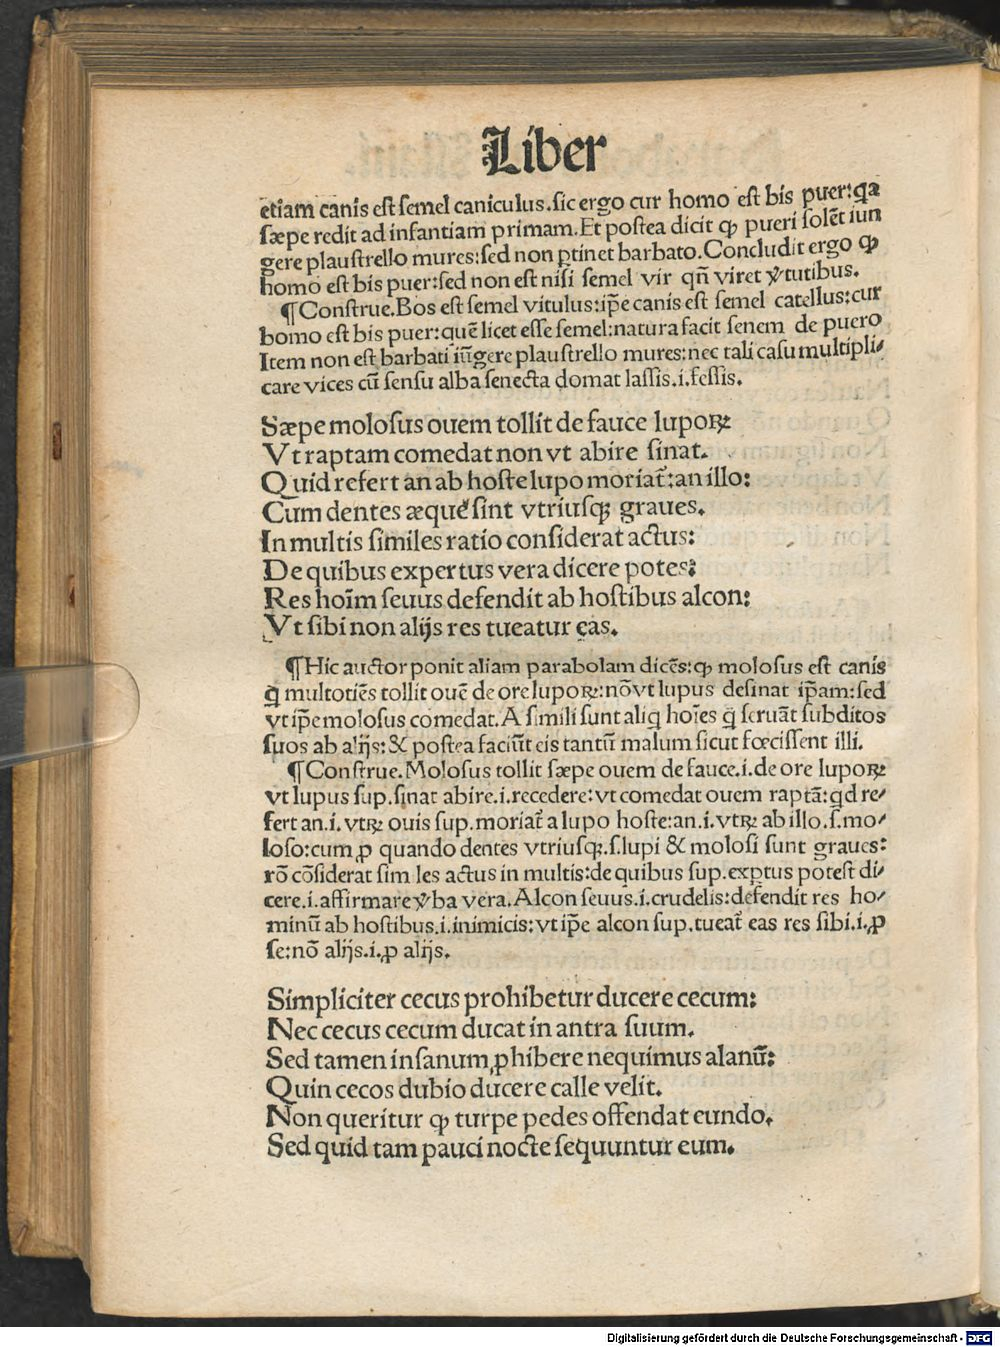 Liber
etiam canis est semel caniculus.sic ergo cur homo est bis puer:qꝛ
sæpe redit ad infantiam primam.Et postea dicit ꝙ pueri solẽt iun
gere plaustrello mures:sed non ꝑtinet barbato.Concludit ergo ꝙ
homo est bis puer:sed non est nisi semel vir qñ viret v̾tutibus.
¶Construe.Bos est semel vitulus:ip̃e canis est semel catellus:cur
homo est bis puer:quẽ licet esse semel:natura facit senem de puero
Item non est barbati iũgere plaustrello mures:nec tali casu multipli⸗
care vices cũ sensu alba senecta domat lassis.i.fessis.
Sæpe molosus ouem tollit de fauce lupoꝝ
Vt raptam comedat non vt abire sinat.
Quid refert an ab hoste lupo moriat᷑:an illo:
Cum dentes æque sint vtriusqꝫ graues.
In multis similes ratio considerat actus:
De quibus expertus vera dicere potes:
Res hoĩm seuus defendit ab hostibus alcon:
Vt sibi non alijs res tueatur eas.
¶Hic auctor ponit aliam parabolam dicẽs:ꝙ molosus est canis
q̃ multotiẽs tollit ouẽ de ore lupoꝝ:nõ vt lupus desinat ip̃am:sed
vt ip̃e molosus comedat.A simili sunt aliq̃ hoĩes q̃ seruãt subditos
suos ab alijs:& postea faciũt eis tantũ malum sicut fœcissent illi.
¶Construe.Molosus tollit sæpe ouem de fauce.i.de ore lupoꝝ
vt lupus sup.sinat abire.i.recedere:vt comedat ouem raptã:qd re⸗
fert an.i.vtꝝ ouis sup.moriat᷑ a lupo hoste:an.i.vtꝝ ab illo.s.mo⸗
loso:cum ꝓ quando dentes vtriusqꝫ.s.lupi & molosi sunt graues:
rõ cõsiderat sim les actus in multis:de quibus sup.exꝑtus potest di⸗
cere.i.affirmare v̾ba vera.Alcon seuus.i.crudelis:defendit res ho⸗
minũ ab hostibus.i.inimicis:vt ip̃e alcon sup.tueat᷑ eas res sibi.i.ꝓ
se:nõ alijs.i.ꝓ alijs.
Simpliciter cecus prohibetur ducere cecum:
Nec cecus cecum ducat in antra suum.
Sed tamen insanum ꝓhibere nequimus alanũ:
Quin cecos dubio ducere calle velit.
Non queritur ꝙ turpe pedes offendat eundo.
Sed quid tam pauci nocte sequuntur eum.
Digitalisierung gefördert durch die Deutsche Forschungsgemeinschaft - DFG